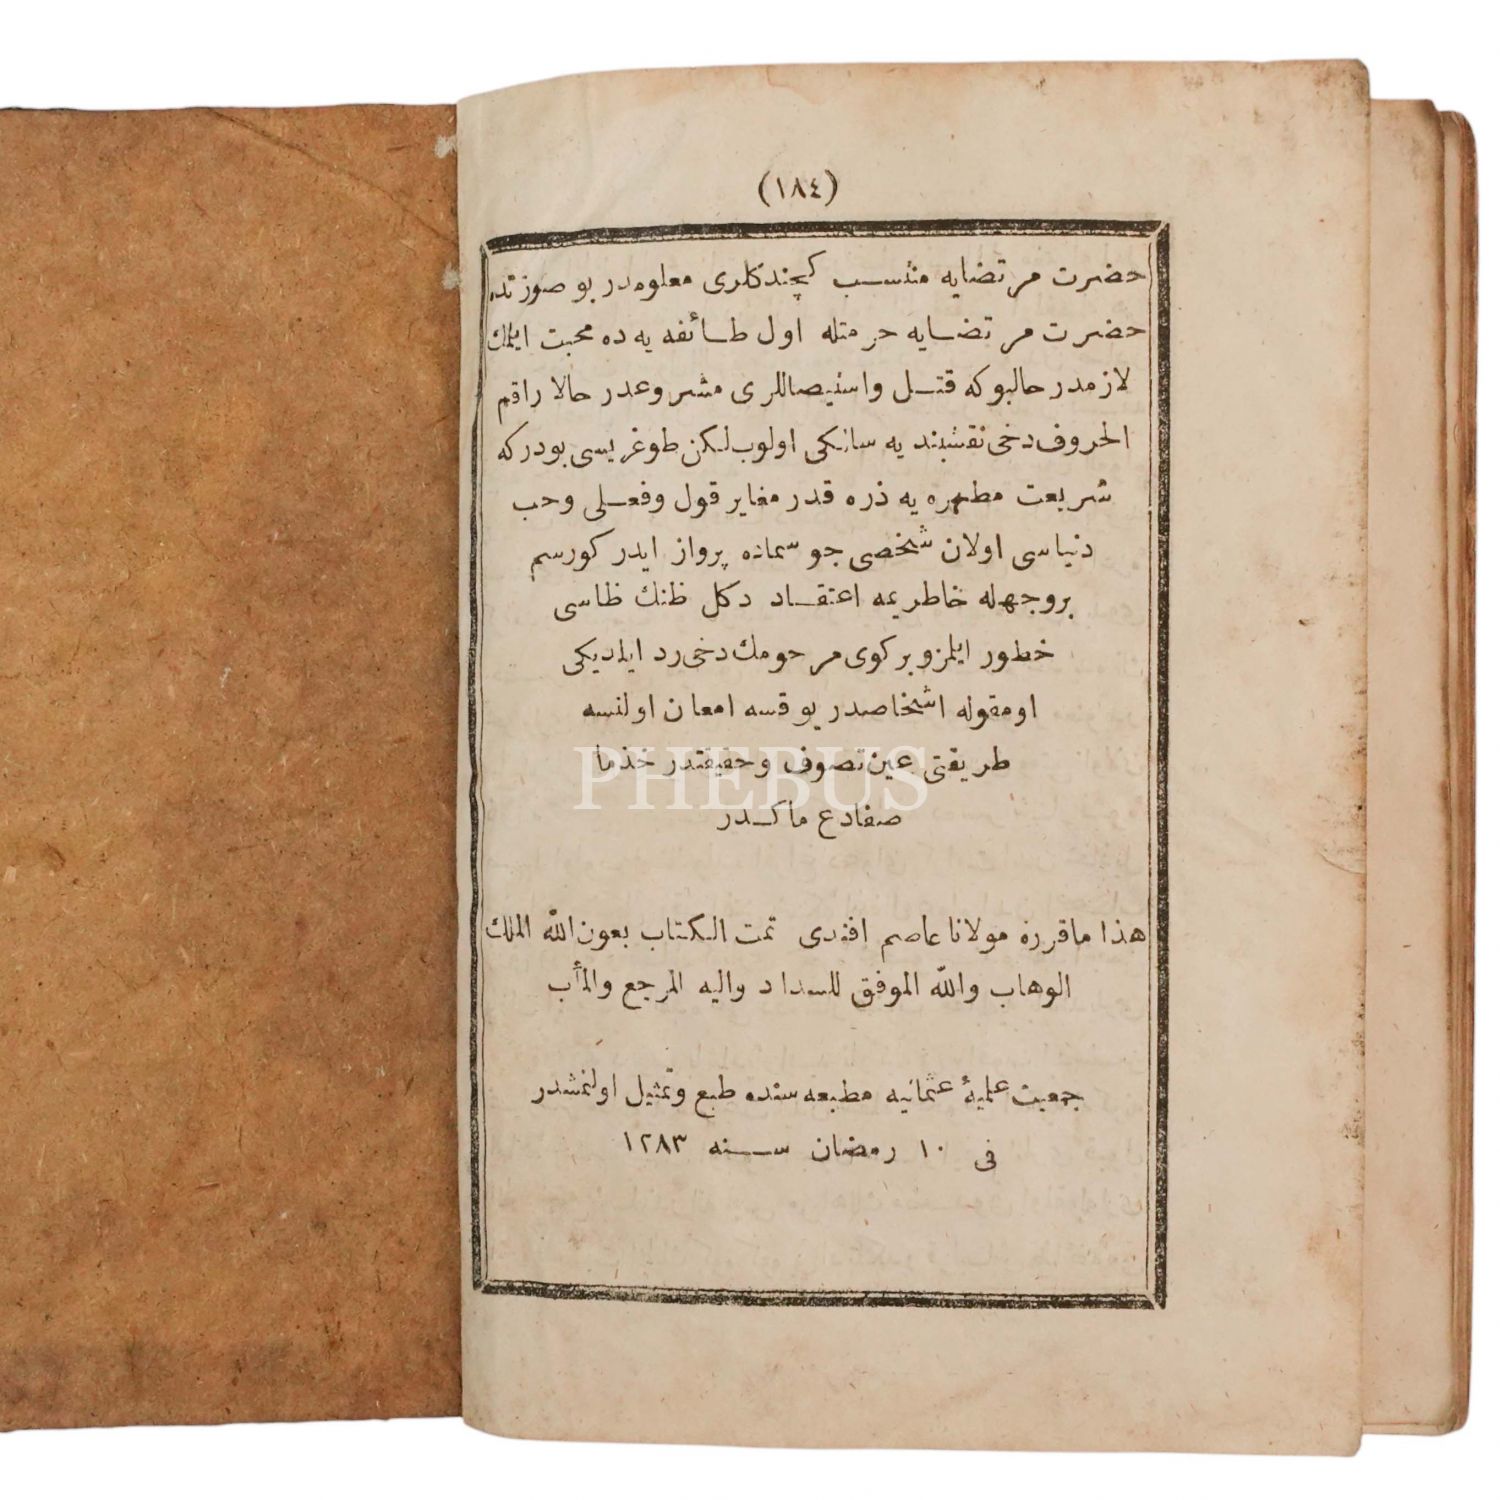 (١٨٤)
حضرت مرتضایه منتسب کچندکلری معلومدر بو صورتده
حضرت مرتضایه حرمتله اول طائفه یه ده محبت ایلمك
لازمدر حالبوکه قتل واستیصاللری مشروعدر حالا راقم
الحروف دخی نقشبندیه سالکی اولوب لکن طوغریسی بودرکه
شریعت مطهره یه ذره قدر مغایر قول وفعلی وحب
دنیاسی اولان شخصی جو سماده پرواز ایدر کورسم
بروجهله خاطریمه اعتقاد دکل ظنك ظاسی
خطور ایلمز وبرکوی مرحومك دخی رد ایلدیکی
اومقوله اشخاصدر یوقسه امعان اولنسه
طریقتی عین تصوف وحقیقتدر خذ ما
صفا دع ما کدر
هذا ماقرره مولانا عاصم افندی تمت الکتاب بعون الله الملك
الوهاب والله الموفق للسداد والیه المرجع والمأب
جمعیت علمیۀ عثمانیه مطبعه سنده طبع وتمثیل اولنمشدر
فی ١٠ رمضان سنه ١٢٨٣
PHEBUS